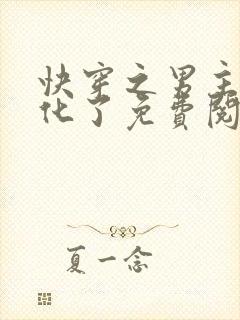 快穿之男主
化了免費閱
夏一念